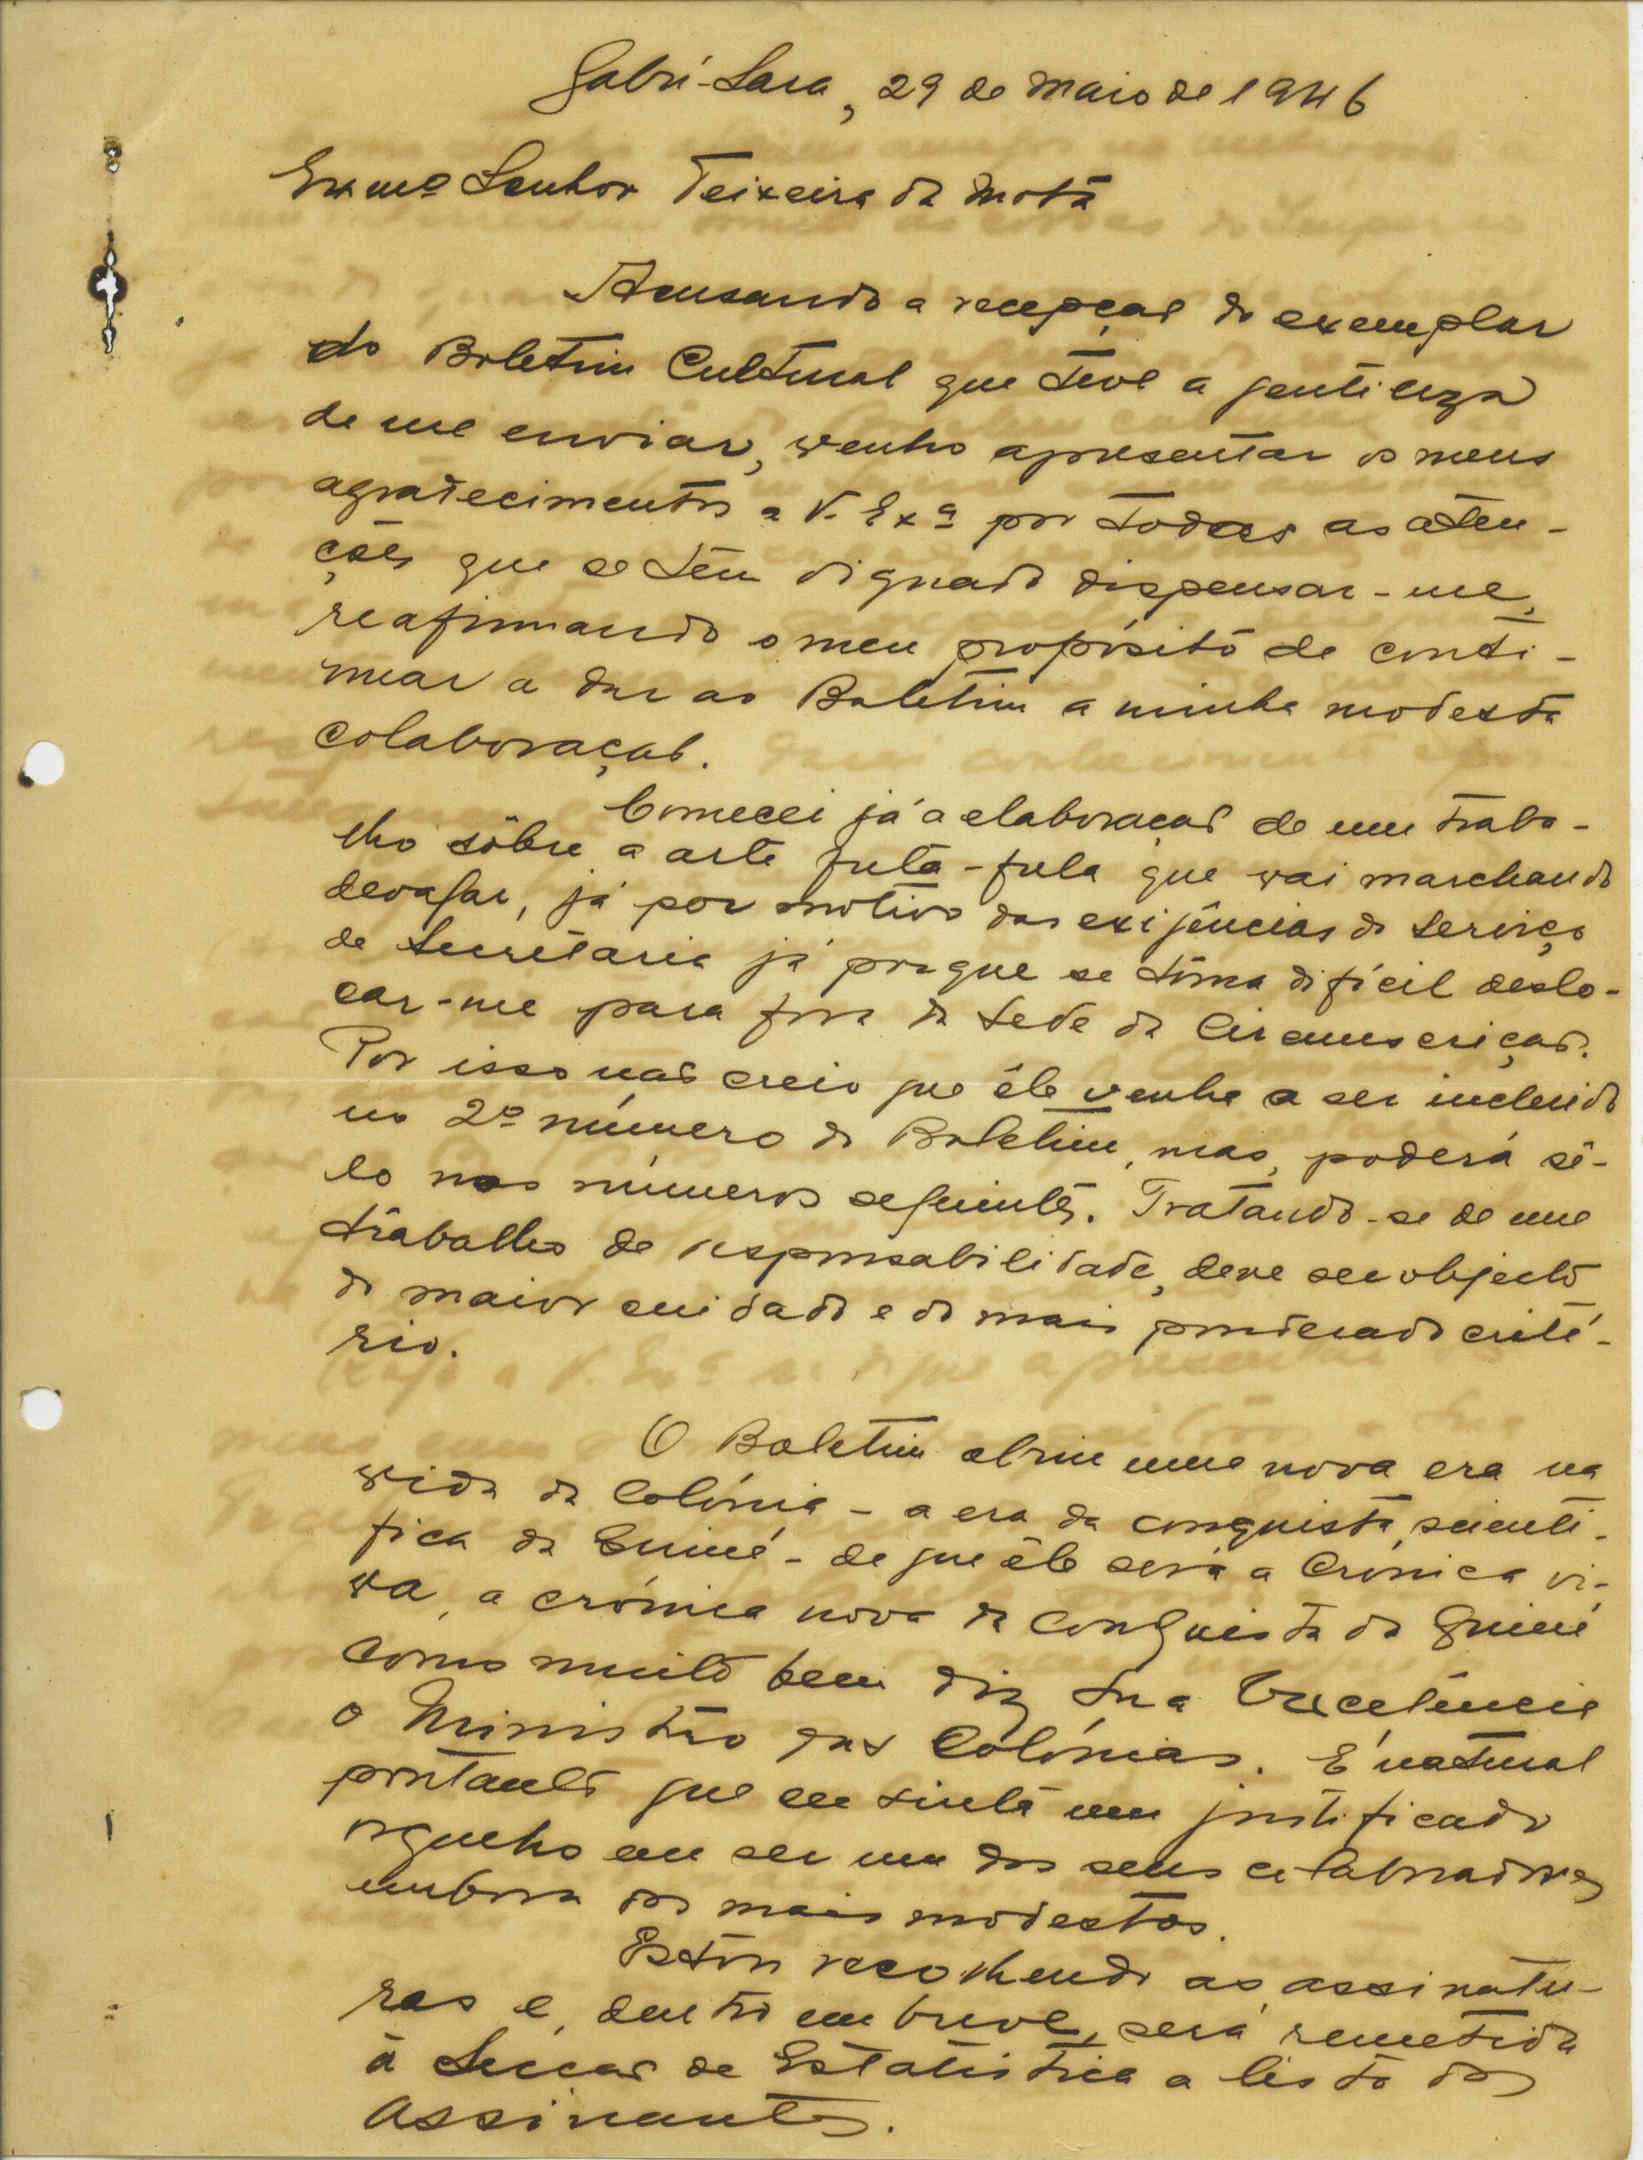 Gabú-Sara, 29 de Maio de 1946
Exmº Senhor Teixeira da Mota
Acusando a recepção do exemplar
do Boletim Cultural que teve a gentileza
de me enviar, venho apresentar os meus
agradecimentos a V. Exª por todas as aten-
ções que se tem dignado dispensar-me,
reafirmando o meu propósito de conti-
nuar a dar ao Boletim a minha modesta
colaboração.
Comecei já a elaboração de um traba-
lho sôbre a arte futa-fula que vai marchando
devagar, já por motivo das exigências do serviço
de Secretaria já porque se torna difícil deslo-
car-me para fora da sede da Circunscrição.
Por isso não creio que êle venha a ser incluido
no 2º número do Boletim, mas, poderá sê-
lo nos números seguintes. Tratando-se de um
trabalho de responsabilidade, deve ser objecto
do maior cuidado e do mais ponderado crité-
rio.
O Boletim abriu uma nova era na
vida da Colónia - a era da conquista scienti-
fica da Guiné - de que êle será a Crónica vi-
va, a crónica nova da Conquista da Guiné
como muito bem diz Sua Excelência
o Ministro das Colónias. É natural
portanto que eu sinta um justificado
orgulho em ser um dos seus colaboradores
embora dos mais modestos.
Estou recolhendo as assinatu-
ras e, dentro em breve, será remetida
à Secção de Estatística a lista dos
assinantes.